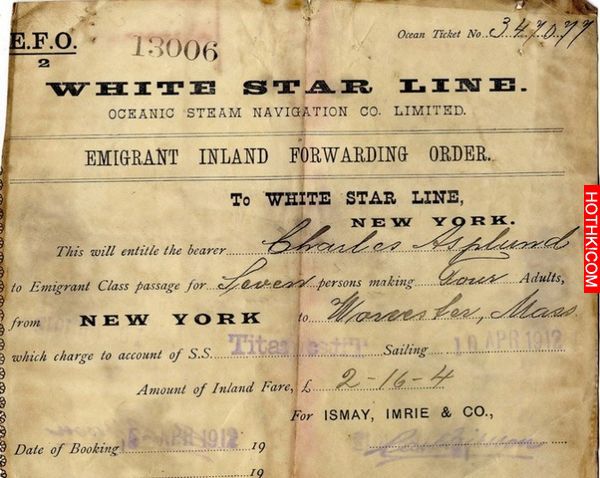 E.F.O.
2
13006
Ocean Ticket No. 347077
WHITE STAR LINE.
OCEANIC STEAM NAVIGATION CO. LIMITED.
EMIGRANT INLAND FORWARDING ORDER.
To WHITE STAR LINE,
NEW YORK.
This will entitle the bearer Charles Asplund
to Emigrant Class passage for Seven persons making Four Adults,
from NEW YORK to Worcester, Mass
which charge to account of S.S. Titanic Sailing 10 APR 1912
Amount of Inland Fare, £ 2-16-4
For ISMAY, IMRIE & CO.,
Date of Booking APR 1912 19
19
HOTHKI.COM